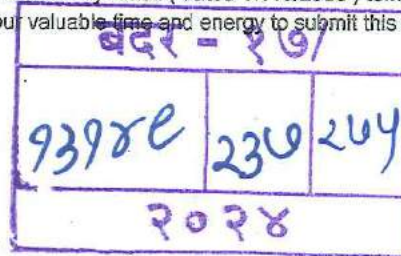 our valuable time and energy to submit this
बदर - १७/
१३१४९ २३७ २७५
२०२४